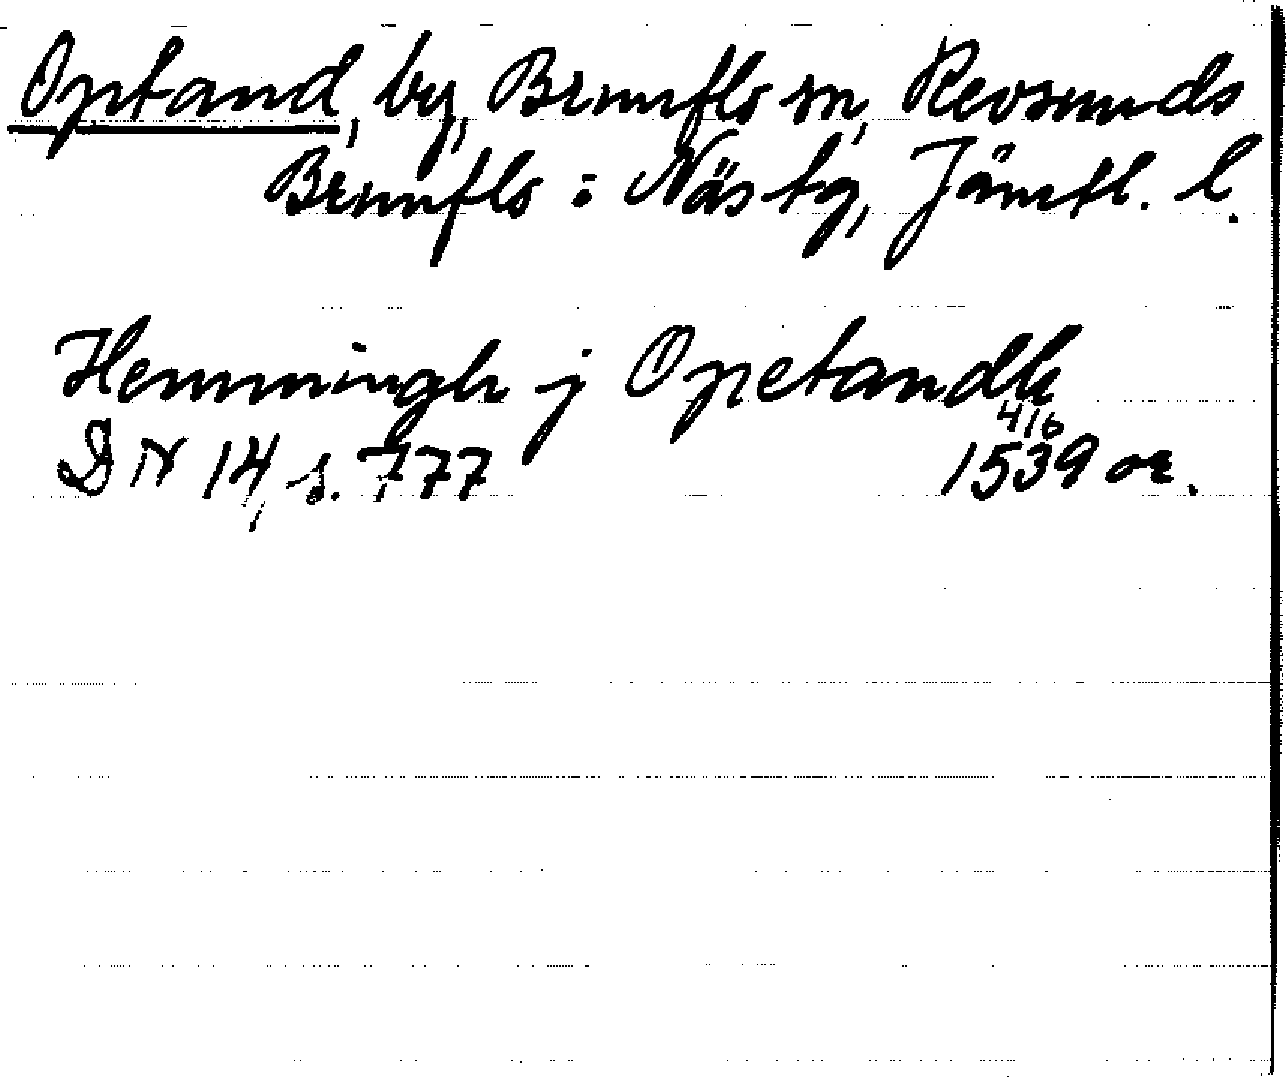 Optand, by, Brunflo sn, Revsunds
Brunflo o Näs tg, Jämtl. l.
Hemmingh j Opetandh
4/6
DN 14, s. 777 1539 or.